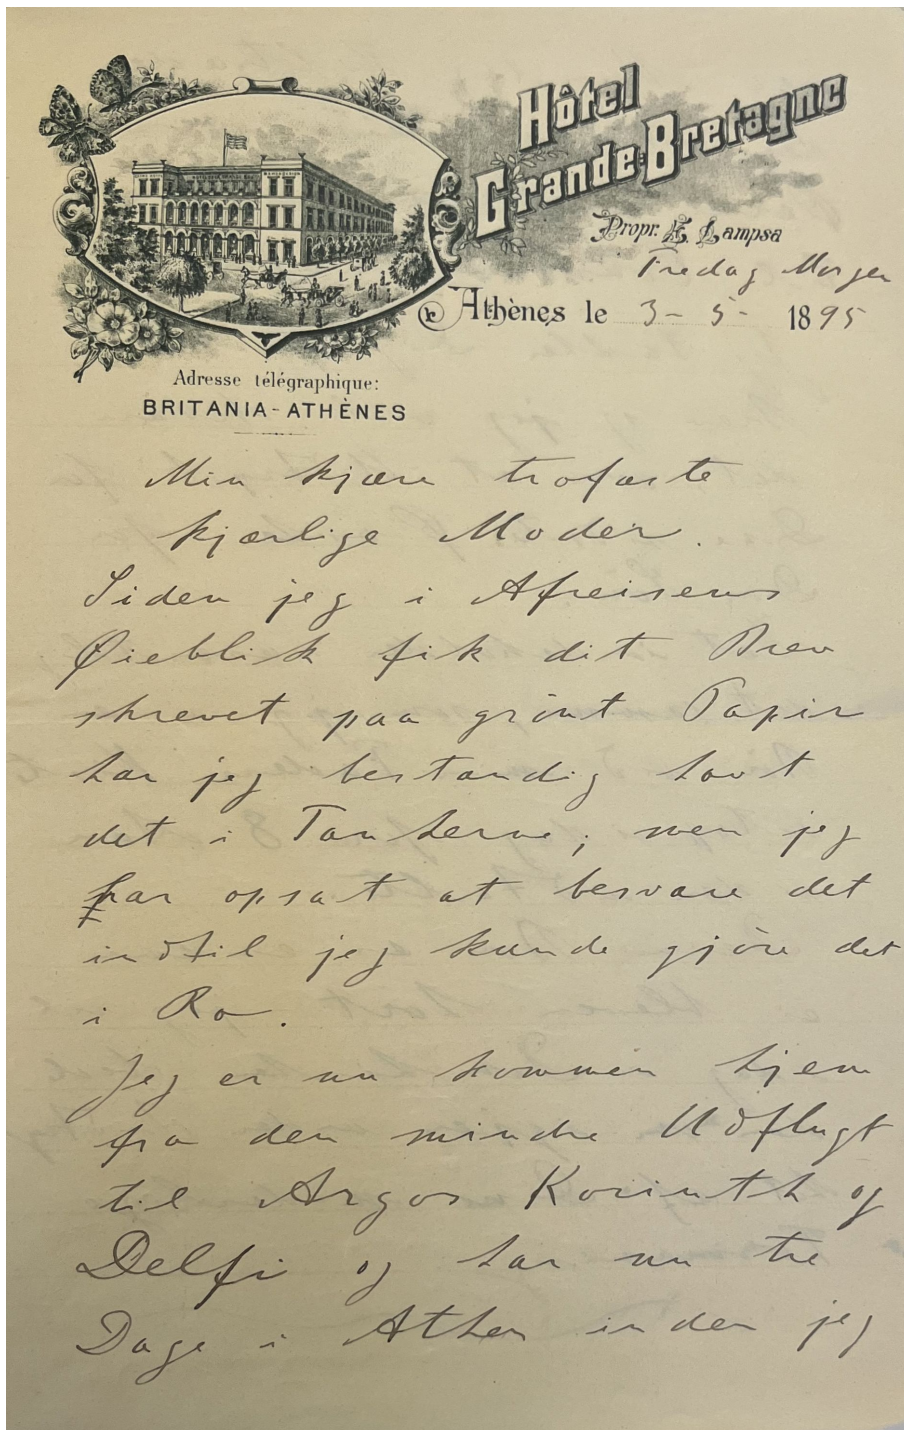 Hôtel
Grande-Bretagne
Propr. E. Lampsa
Fredag Morgen
Athènes le 3-5- 1895
Adresse télégraphique:
BRITANIA-ATHÈNES
Min kjære trofaste
kjærlige Moder.
Siden jeg i Afreisens
Øieblik fik dit Brev
skrevet paa grönt Papir
har jeg bestandig havt
det i Tankerne; men jeg
har opsat at besvare det
indtil jeg kunde gjöre det
i Ro.
Jeg er nu kommen hjem
fra den mindre Udflugt
til Argos Korinth og
Delfi og har nu tre
Dage i Athen inden jeg